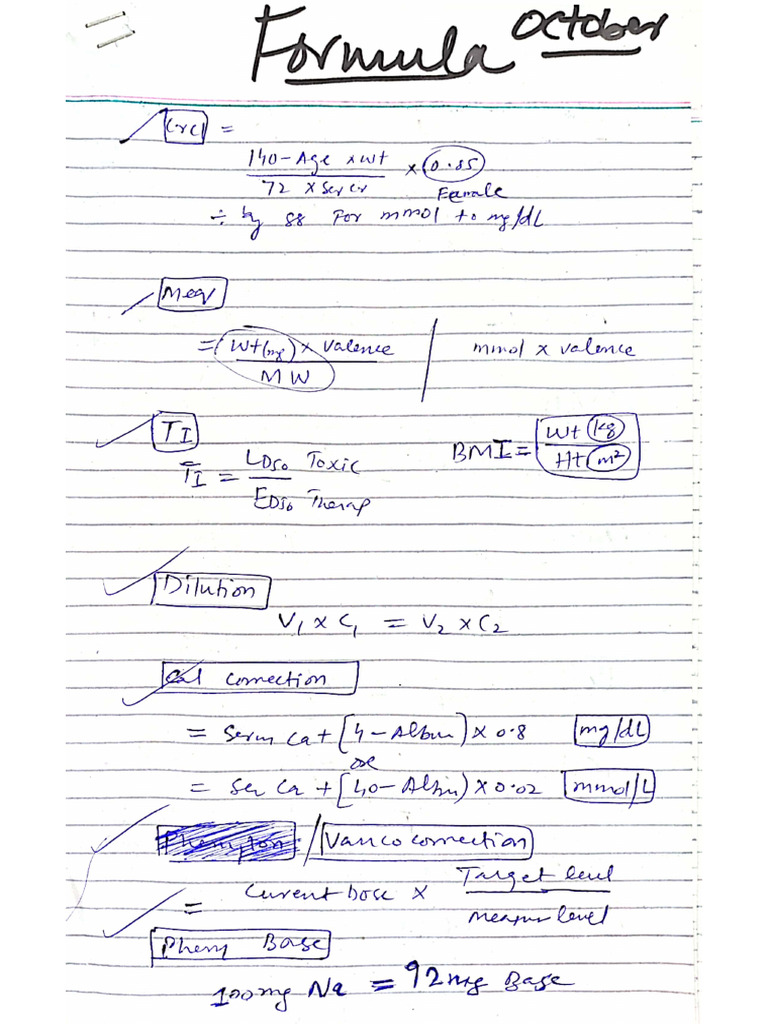 Formula October
Crcl =
140-Age x wt
72 x ser cr
x 0.85
Female
÷ by 88 For mmol to mg/dL
Meq
= Wt(mg) x valence
MW
mmol x valence
TI
TI = LD50 Toxic
ED50 Therap
BMI = Wt kg
Ht m²
Dilution
V1 x C1 = V2 x C2
Cal correction
= Serm Ca + [4-Albm] x 0.8 mg/dL
or
= Ser Ca + [40-Albm] x 0.02 mmol/L
/ Vanco correction
= Current Dose x Target level
Measur level
Pheny Base
100mg Na = 92mg Base